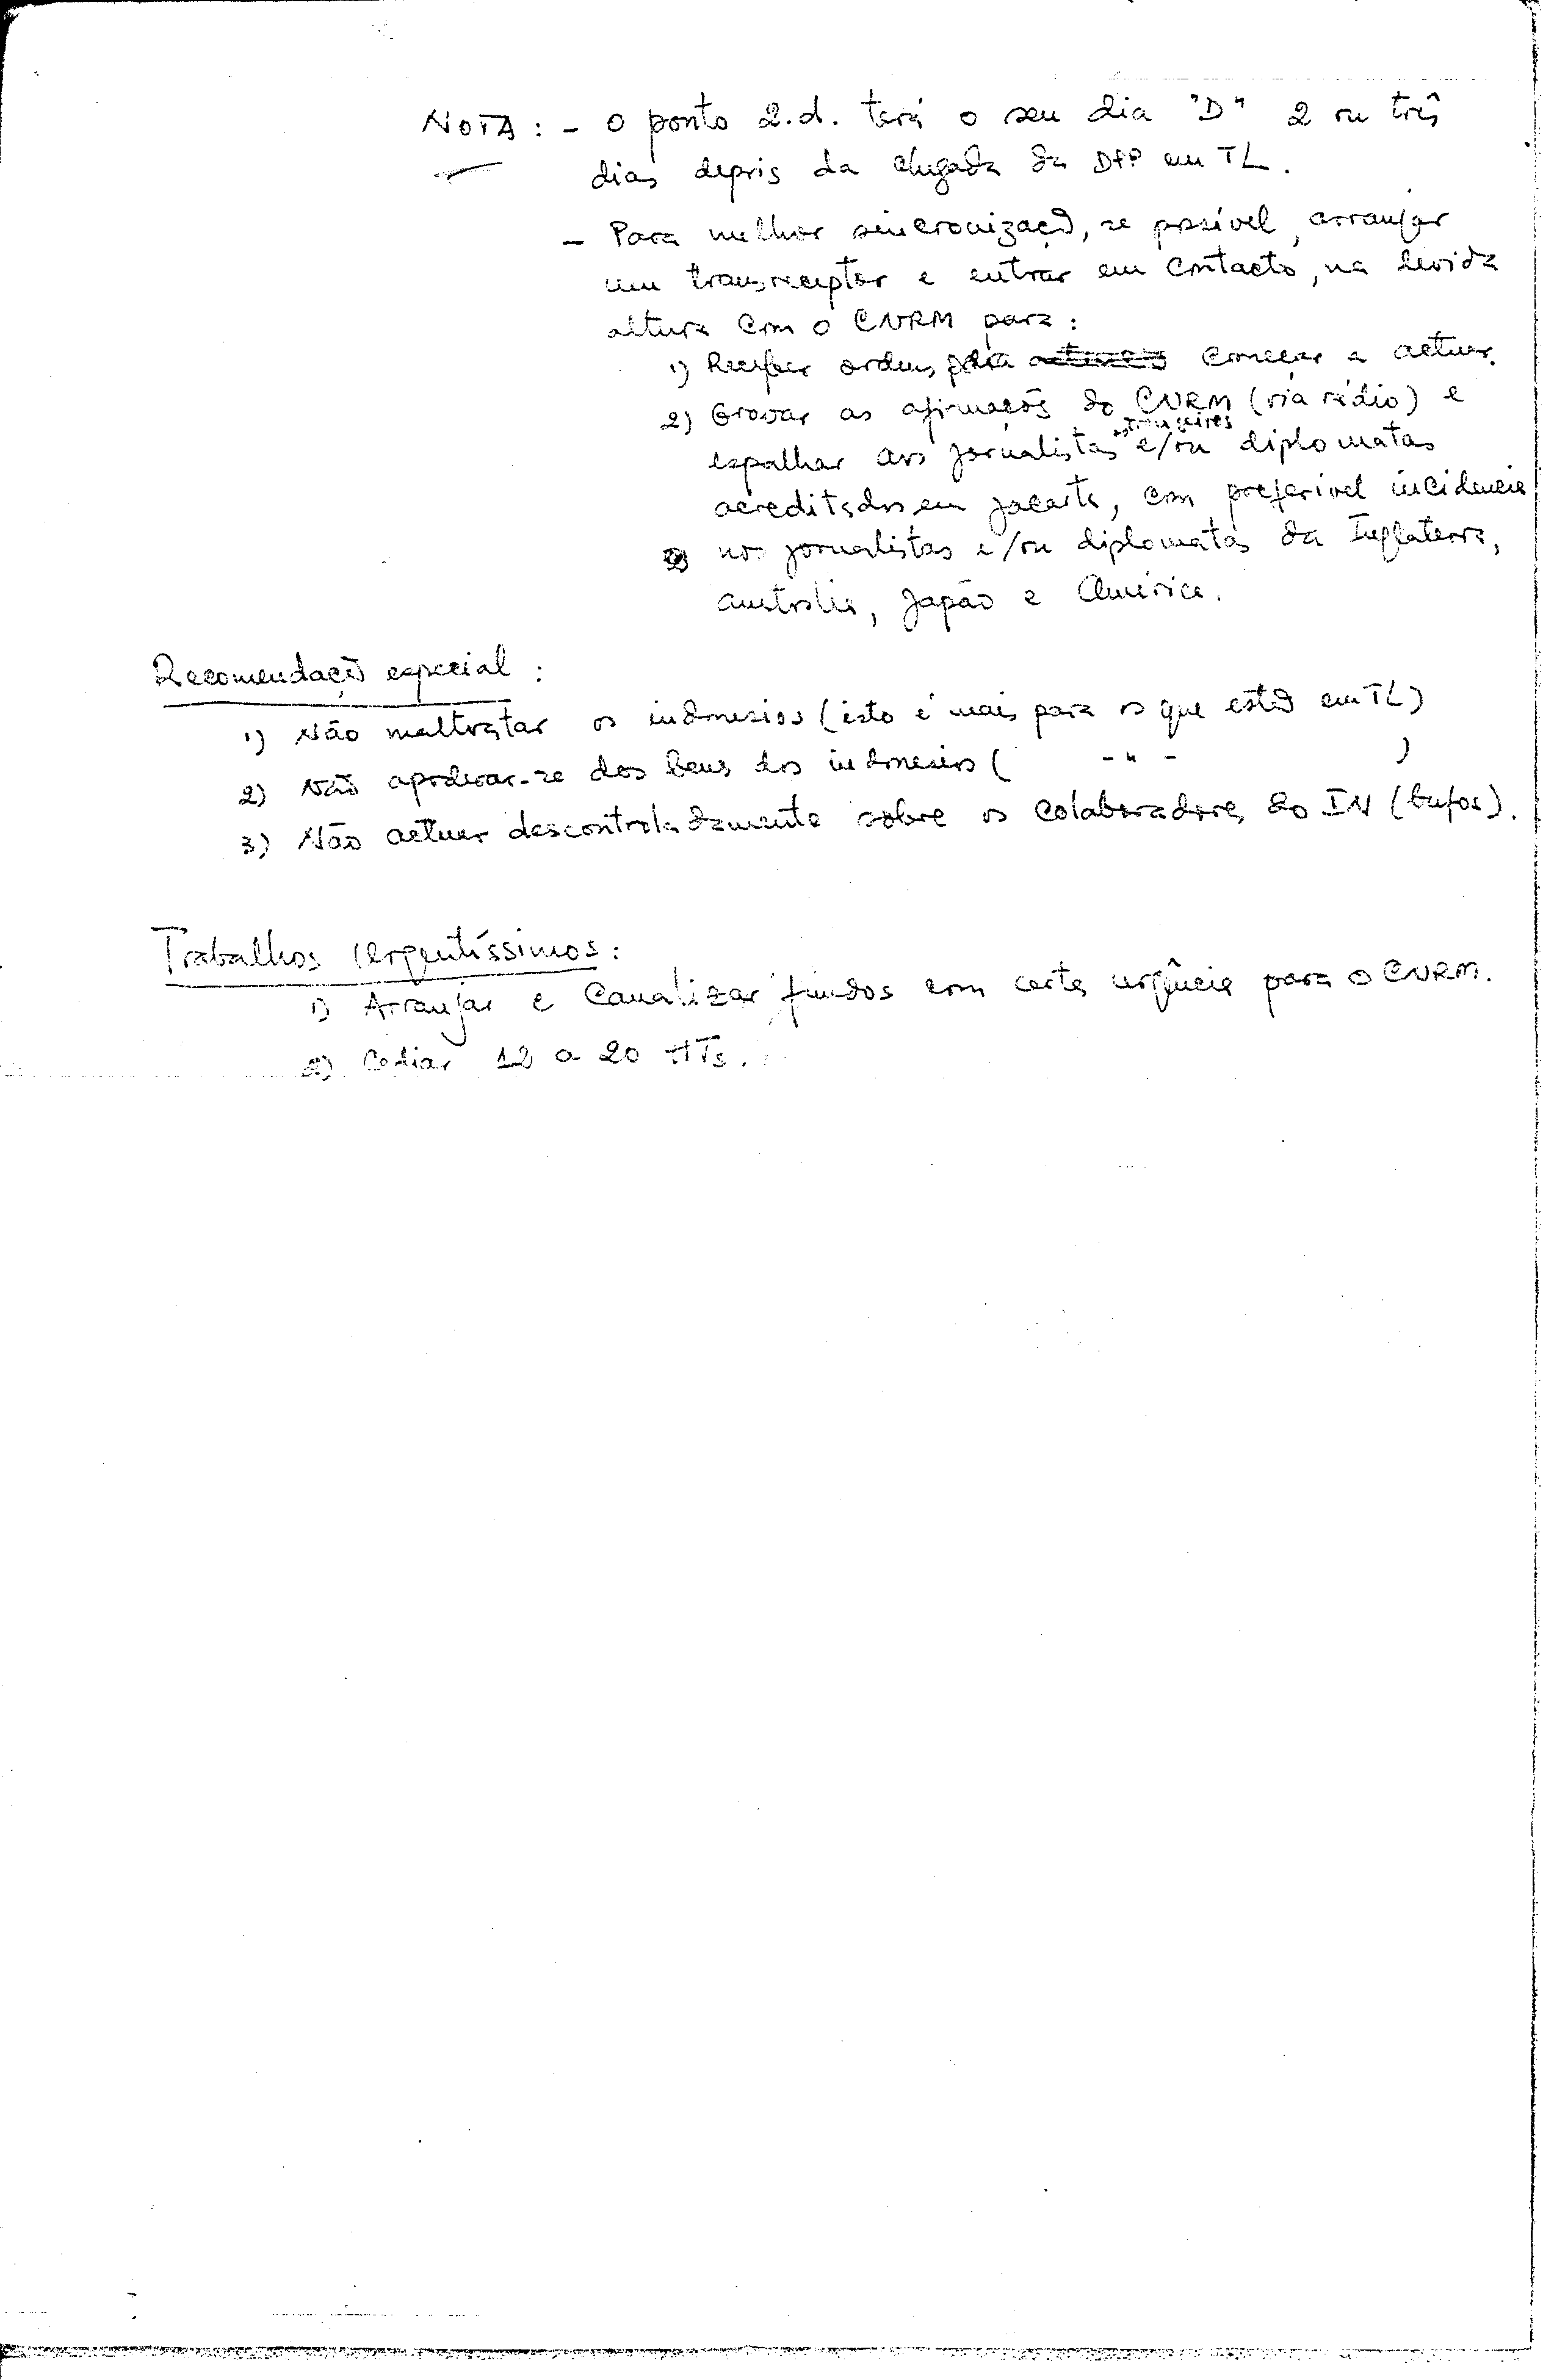 NOTA: - O ponto 2.d. terá o seu dia "D" 2 ou três
dias depois da chegada da DPP em TL.
- Para melhor sincronização, se possível, arranjar
um transreceptor e entrar em contacto, na devida
altura com o CNRM para:
1) Receber ordens para começar a actuar.
2) Gravar as afirmações do CNRM (via rádio) e
espalhar aos jornalistas estrangeiros e/ou diplomatas
acreditados em Jacarta, com preferível incidencia
nos jornalistas e/ou diplomatas da Inglaterra,
Australia, Japão e América.
Recomendação especial:
1) Não maltratar os indonesios (isto é mais para os que estão em TL)
2) Não apoderar-se dos bens dos indonesios ( - " - )
3) Não actuar descontroladamente sobre os colaboradores do IN (bufos).
Trabalhos urgentíssimos:
1) Arranjar e Canalizar fundos com certa urgência para o CNRM.
2) 12 a 20 HTs.